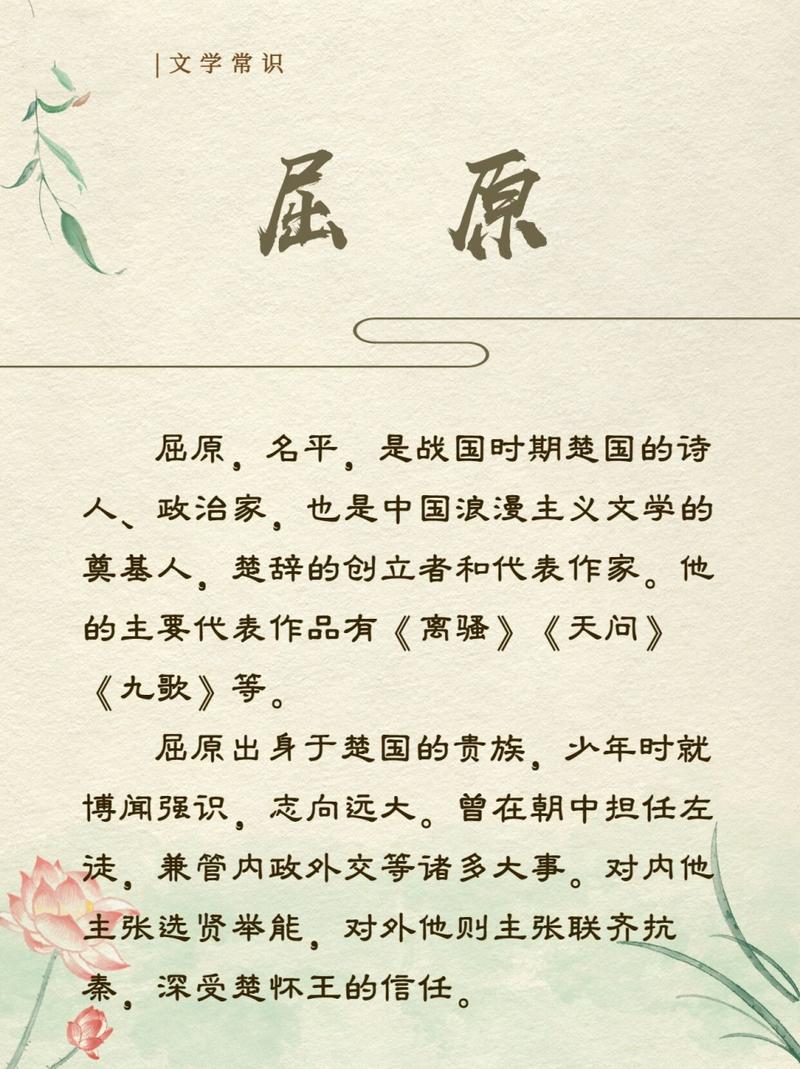 |文学常识
屈 原
屈原，名平，是战国时期楚国的诗
人、政治家，也是中国浪漫主义文学的
奠基人，楚辞的创立者和代表作家。他
的主要代表作品有《离骚》《天问》
《九歌》等。
屈原出身于楚国的贵族，少年时就
博闻强识，志向远大。曾在朝中担任左
徒，兼管内政外交等诸多大事。对内他
主张选贤举能，对外他则主张联齐抗
秦，深受楚怀王的信任。